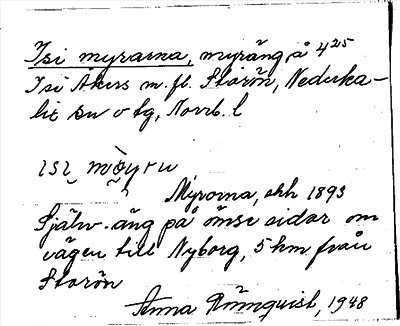 Isi myrarna, myräng å 4²⁵
Isi Åkers m. fl. Storön, Nederka-
lix sn o tg, Norrb. l
ɪsɪ mòyrʉ
Myrorna, ekk 1893
Själv-äng på ömse sidor om
vägen till Nyborg, 5 km från
Storön
Anna Rönnquist, 1948